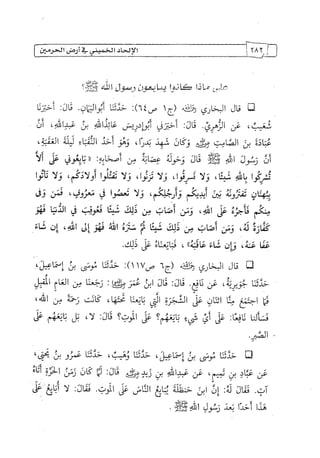 ٢٨٢ الإلحاد الخميني في أرض الحرمين
على ماذا كانوا يبايعون رسول الله ﷺ؟
□ قال البخاري رحمه الله (ج١ ص٦٤): حَدَّثَنَا أَبُو اليَمَانِ. قَالَ: أَخْبَرَنَا
شُعَيْبٌ، عَنِ الزُّهْرِيِّ. قَالَ: أَخْبَرَنِي أَبُو إِدْرِيسَ عَائِذُ اللهِ بْنُ عَبْدِاللهِ، أَنَّ
عُبَادَةَ بْنَ الصَّامِتِ رضي الله عنه وَكَانَ شَهِدَ بَدْرًا، وَهُوَ أَحَدُ النُّقَبَاءِ لَيْلَةَ العَقَبَةِ،
أَنَّ رَسُولَ اللهِ ﷺ قَالَ وَحَوْلَهُ عِصَابَةٌ مِنْ أَصْحَابِهِ: «بَايِعُونِي عَلَى أَلَّا
تُشْرِكُوا بِاللهِ شَيْئًا، وَلَا تَسْرِقُوا، وَلَا تَزْنُوا، وَلَا تَقْتُلُوا أَوْلَادَكُمْ، وَلَا تَأْتُوا
بِبُهْتَانٍ تَفْتَرُونَهُ بَيْنَ أَيْدِيكُمْ وَأَرْجُلِكُمْ، وَلَا تَعْصُوا فِي مَعْرُوفٍ، فَمَنْ وَفَى
مِنْكُمْ فَأَجْرُهُ عَلَى اللهِ، وَمَنْ أَصَابَ مِنْ ذَلِكَ شَيْئًا فَعُوقِبَ فِي الدُّنْيَا فَهُوَ
كَفَّارَةٌ لَهُ، وَمَنْ أَصَابَ مِنْ ذَلِكَ شَيْئًا ثُمَّ سَتَرَهُ اللهُ فَهُوَ إِلَى اللهِ، إِنْ شَاءَ
عَفَا عَنْهُ، وَإِنْ شَاءَ عَاقَبَهُ»، فَبَايَعْنَاهُ عَلَى ذَلِكَ.
□ قال البخاري رحمه الله (ج٦ ص١١٧): حَدَّثَنَا مُوسَى بْنُ إِسْمَاعِيلَ،
حَدَّثَنَا جُوَيْرِيَةُ، عَنْ نَافِعٍ. قَالَ: قَالَ ابْنُ عُمَرَ رضي الله عنهما: رَجَعْنَا مِنَ العَامِ المُقْبِلِ
فَمَا اجْتَمَعَ مِنَّا اثْنَانِ عَلَى الشَّجَرَةِ الَّتِي بَايَعْنَا تَحْتَهَا، كَانَتْ رَحْمَةً مِنَ اللهِ،
فَسَأَلْنَا نَافِعًا: عَلَى أَيِّ شَيْءٍ بَايَعَهُمْ؟ عَلَى المَوْتِ؟ قَالَ: لَا، بَلْ بَايَعَهُمْ عَلَى
الصَّبْرِ.
□ حَدَّثَنَا مُوسَى بْنُ إِسْمَاعِيلَ، حَدَّثَنَا وُهَيْبٌ، حَدَّثَنَا عَمْرُو بْنُ يَحْيَى،
عَنْ عَبَّادِ بْنِ تَمِيمٍ، عَنْ عَبْدِاللهِ بْنِ زَيْدٍ رضي الله عنه قَالَ: لَمَّا كَانَ زَمَنُ الحَرَّةِ أَتَاهُ
آتٍ. فَقَالَ لَهُ: إِنَّ ابْنَ حَنْظَلَةَ يُبَايِعُ النَّاسَ عَلَى المَوْتِ. فَقَالَ: لَا أُبَايِعُ عَلَى
هَذَا أَحَدًا بَعْدَ رَسُولِ اللهِ ﷺ.